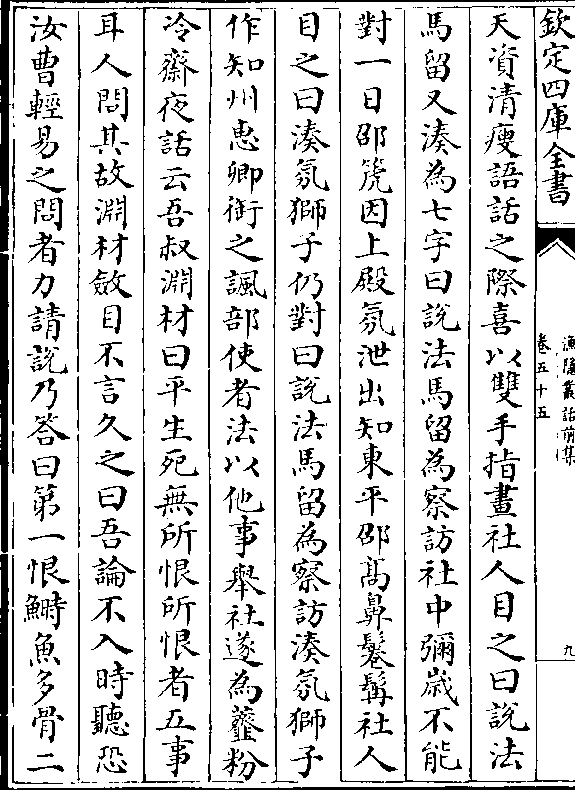 欽定四庫全書
漁隱叢話前集
卷五十五
九
天資清瘦語話之際喜以雙手指畫社人目之曰說法
馬留又湊為七字曰說法馬留為察訪社中彌歲不能
對一日邵箎因上殿氣泄出知東平邵髙鼻鬈髯社人
目之曰湊氛獅子仍對曰說法馬留為察訪湊氛獅子
作知州惠卿銜之諷部使者法以他事舉社遂為虀粉
冷齋夜話云吾叔淵材曰平生死無所恨所恨者五事
耳人問其故淵材斂目不言久之曰吾論不入時聽恐
汝曹輕易之問者力請說乃答曰第一恨鰣魚多骨二